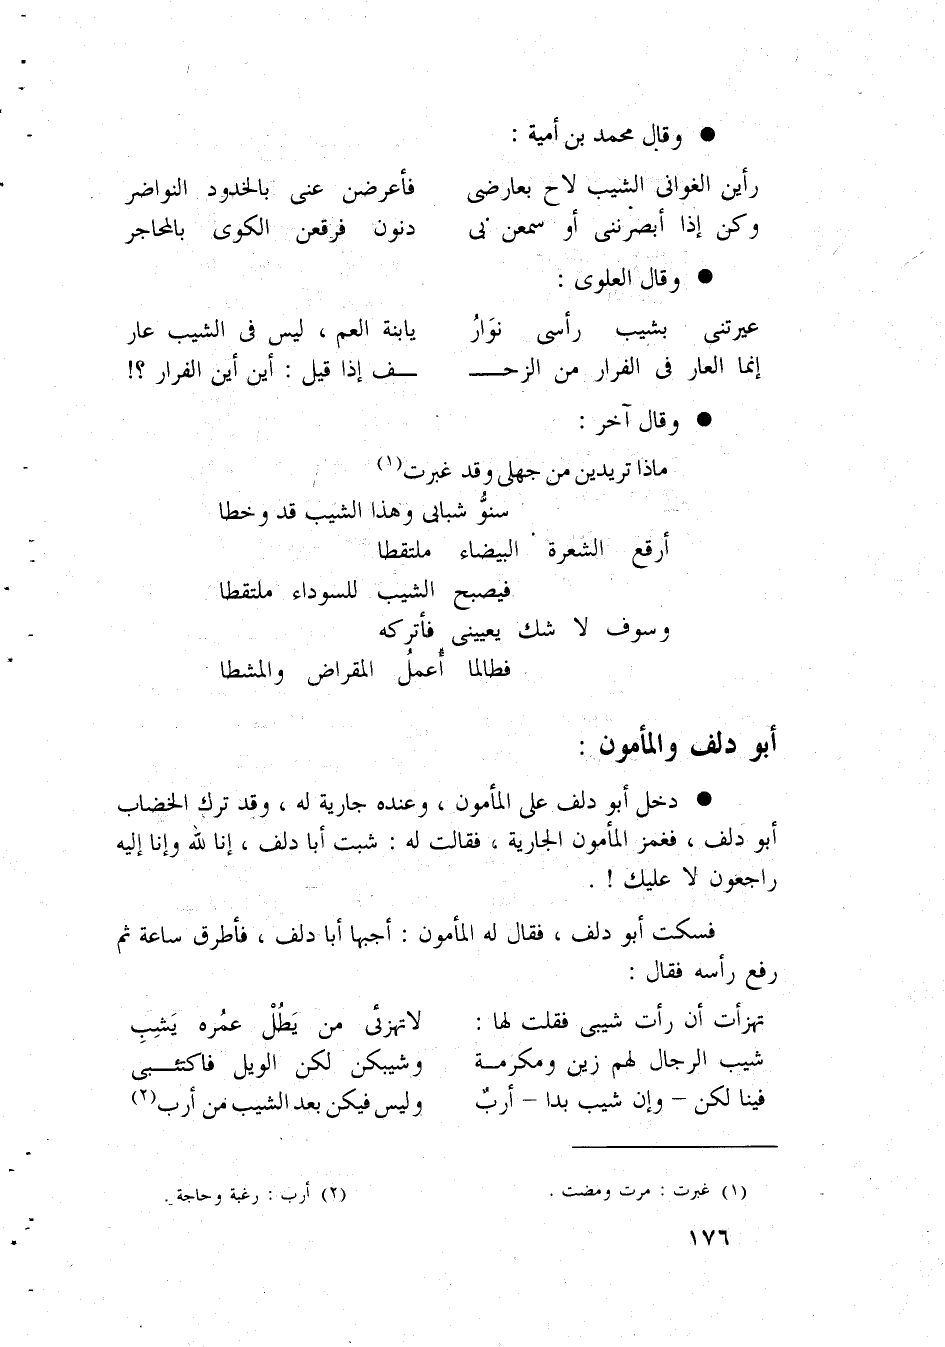 ● وقال محمد بن أمية :
رأين الغوانى الشيب لاح بعارضى فأعرضن عنى بالخدود النواضر
وكن إذا أبصرننى أو سمعن بى دنون فرقعن الكوى بالمحاجر
● وقال العلوى :
عيرتنى بشيب رأسى نوَارُ يابنة العم ، ليس فى الشيب عار
إنما العار فى الفرار من الزحـــ ـــف إذا قيل : أين أين الفرار ؟!
● وقال آخر :
ماذا تريدين من جهلى وقد غبرت(١)
سنوُّ شبابى وهذا الشيب قد وخطا
أرقع الشعرة البيضاء ملتقطا
فيصبح الشيب للسوداء ملتقطا
وسوف لا شك يعيينى فأتركه
فطالما أُعملُ المقراض والمشطا
أبو دلف والمأمون :
● دخل أبو دلف على المأمون ، وعنده جارية له ، وقد ترك الخضاب
أبو دَلف ، فغمز المأمون الجارية ، فقالت له : شبت أبا دلف ، إنا لله وإنا إليه
راجعون لا عليك ! .
فسكت أبو دلف ، فقال له المأمون : أجبها أبا دلف ، فأطرق ساعة ثم
رفع رأسه فقال :
تهزأت أن رأت شيبى فقلت لها : لاتهزئى من يَطُلْ عمُره يَشِبِ
شيب الرجال لهم زين ومكرمـة وشيبكن لكن الويل فاكتئـــبى
فينا لكن – وإن شيب بدا – أربٌ وليس فيكن بعد الشيب من أرب(٢)
(١) غبرت : مرت ومضت . (٢) أرب : رغبة وحاجة .
١٧٦